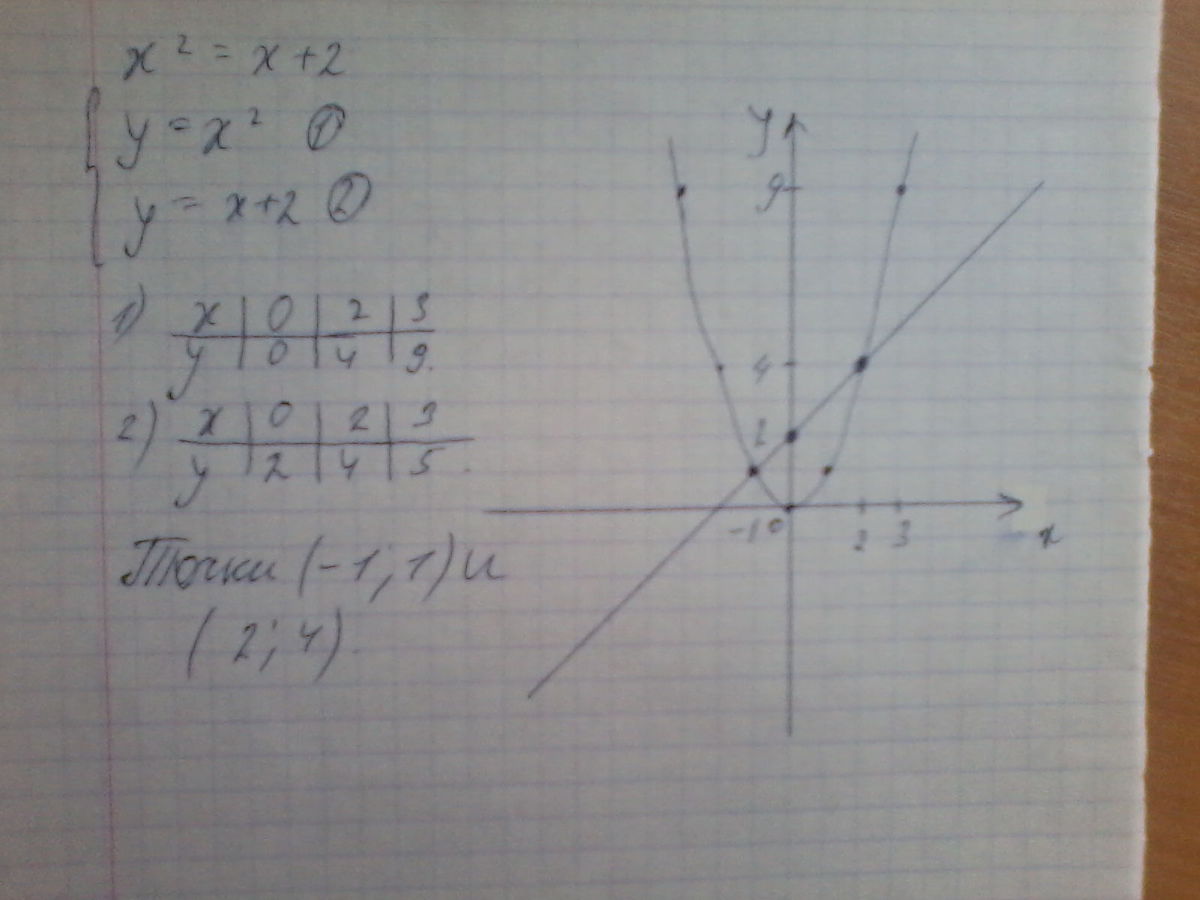 x² = x+2
y = x² ①
y = x+2 ②
1) x | 0 | 2 | 3
y | 0 | 4 | 9.
2) x | 0 | 2 | 3
y | 2 | 4 | 5.
Точки (-1; 1) и
(2; 4).
y
9
4
2
-1 0 2 3 x